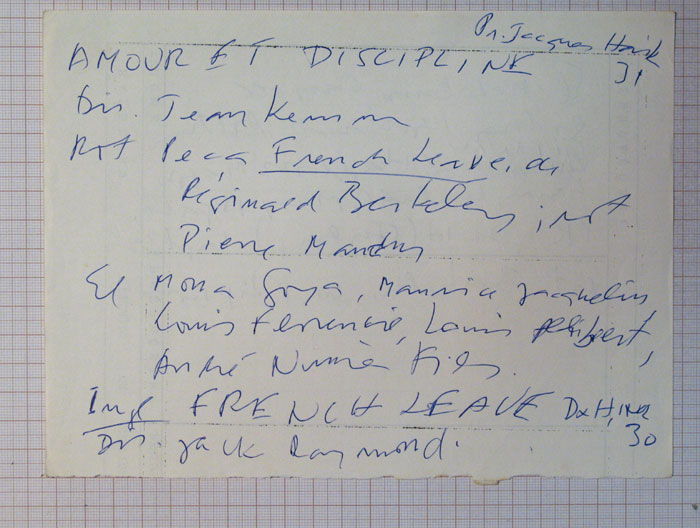 Pr. Jacques Haik
AMOUR ET DISCIPLINE 31
Dir. Jean Kemm
Rgt Peça French Leave, de
Reginald Berkeley, int
Pierre Maudru
El Mona Goya, Maurice Jacquelin
Louis Florencie, Louis
André Numès Fils.
Ingl FRENCH LEAVE
30
Dir. Jack Raymond.